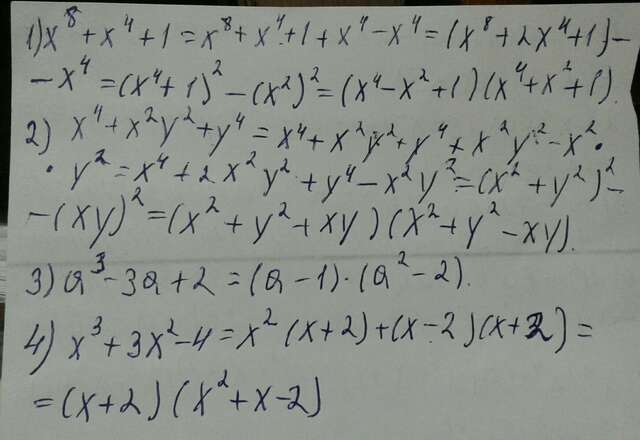 1) x⁸ + x⁴ + 1 = x⁸ + x⁴ + 1 + x⁴ - x⁴ = (x⁸ + 2x⁴ + 1) -
- x⁴ = (x⁴ + 1)² - (x²)² = (x⁴ - x² + 1)(x⁴ + x² + 1).
2) x⁴ + x²y² + y⁴ = x⁴ + x²y² + y⁴ + x²y² - x² ·
· y² = x⁴ + 2x²y² + y⁴ - x²y² = (x² + y²)² -
- (xy)² = (x² + y² + xy)(x² + y² - xy).
3) a³ - 3a + 2 = (a - 1) · (a² - 2).
4) x³ + 3x² - 4 = x² (x + 2) + (x - 2)(x + 2) =
= (x + 2)(x² + x - 2)